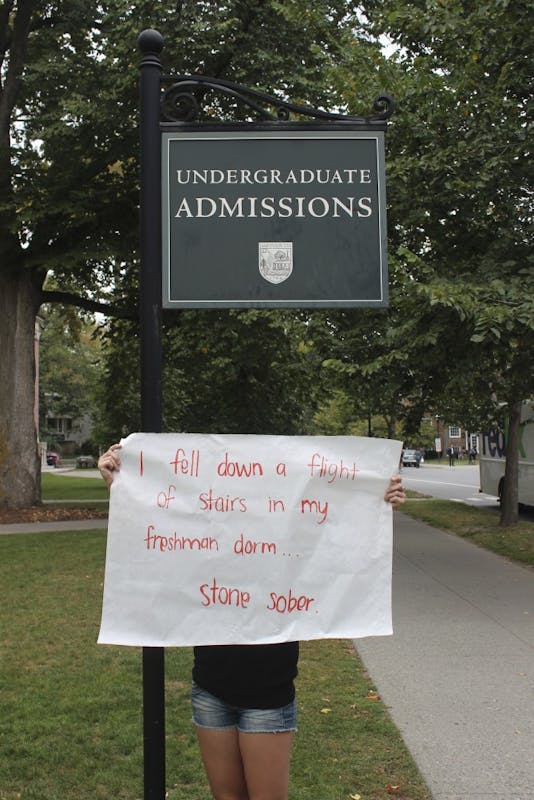 UNDERGRADUATE
ADMISSIONS
I fell down a flight
of stairs in my
freshman dorm...
stone sober.